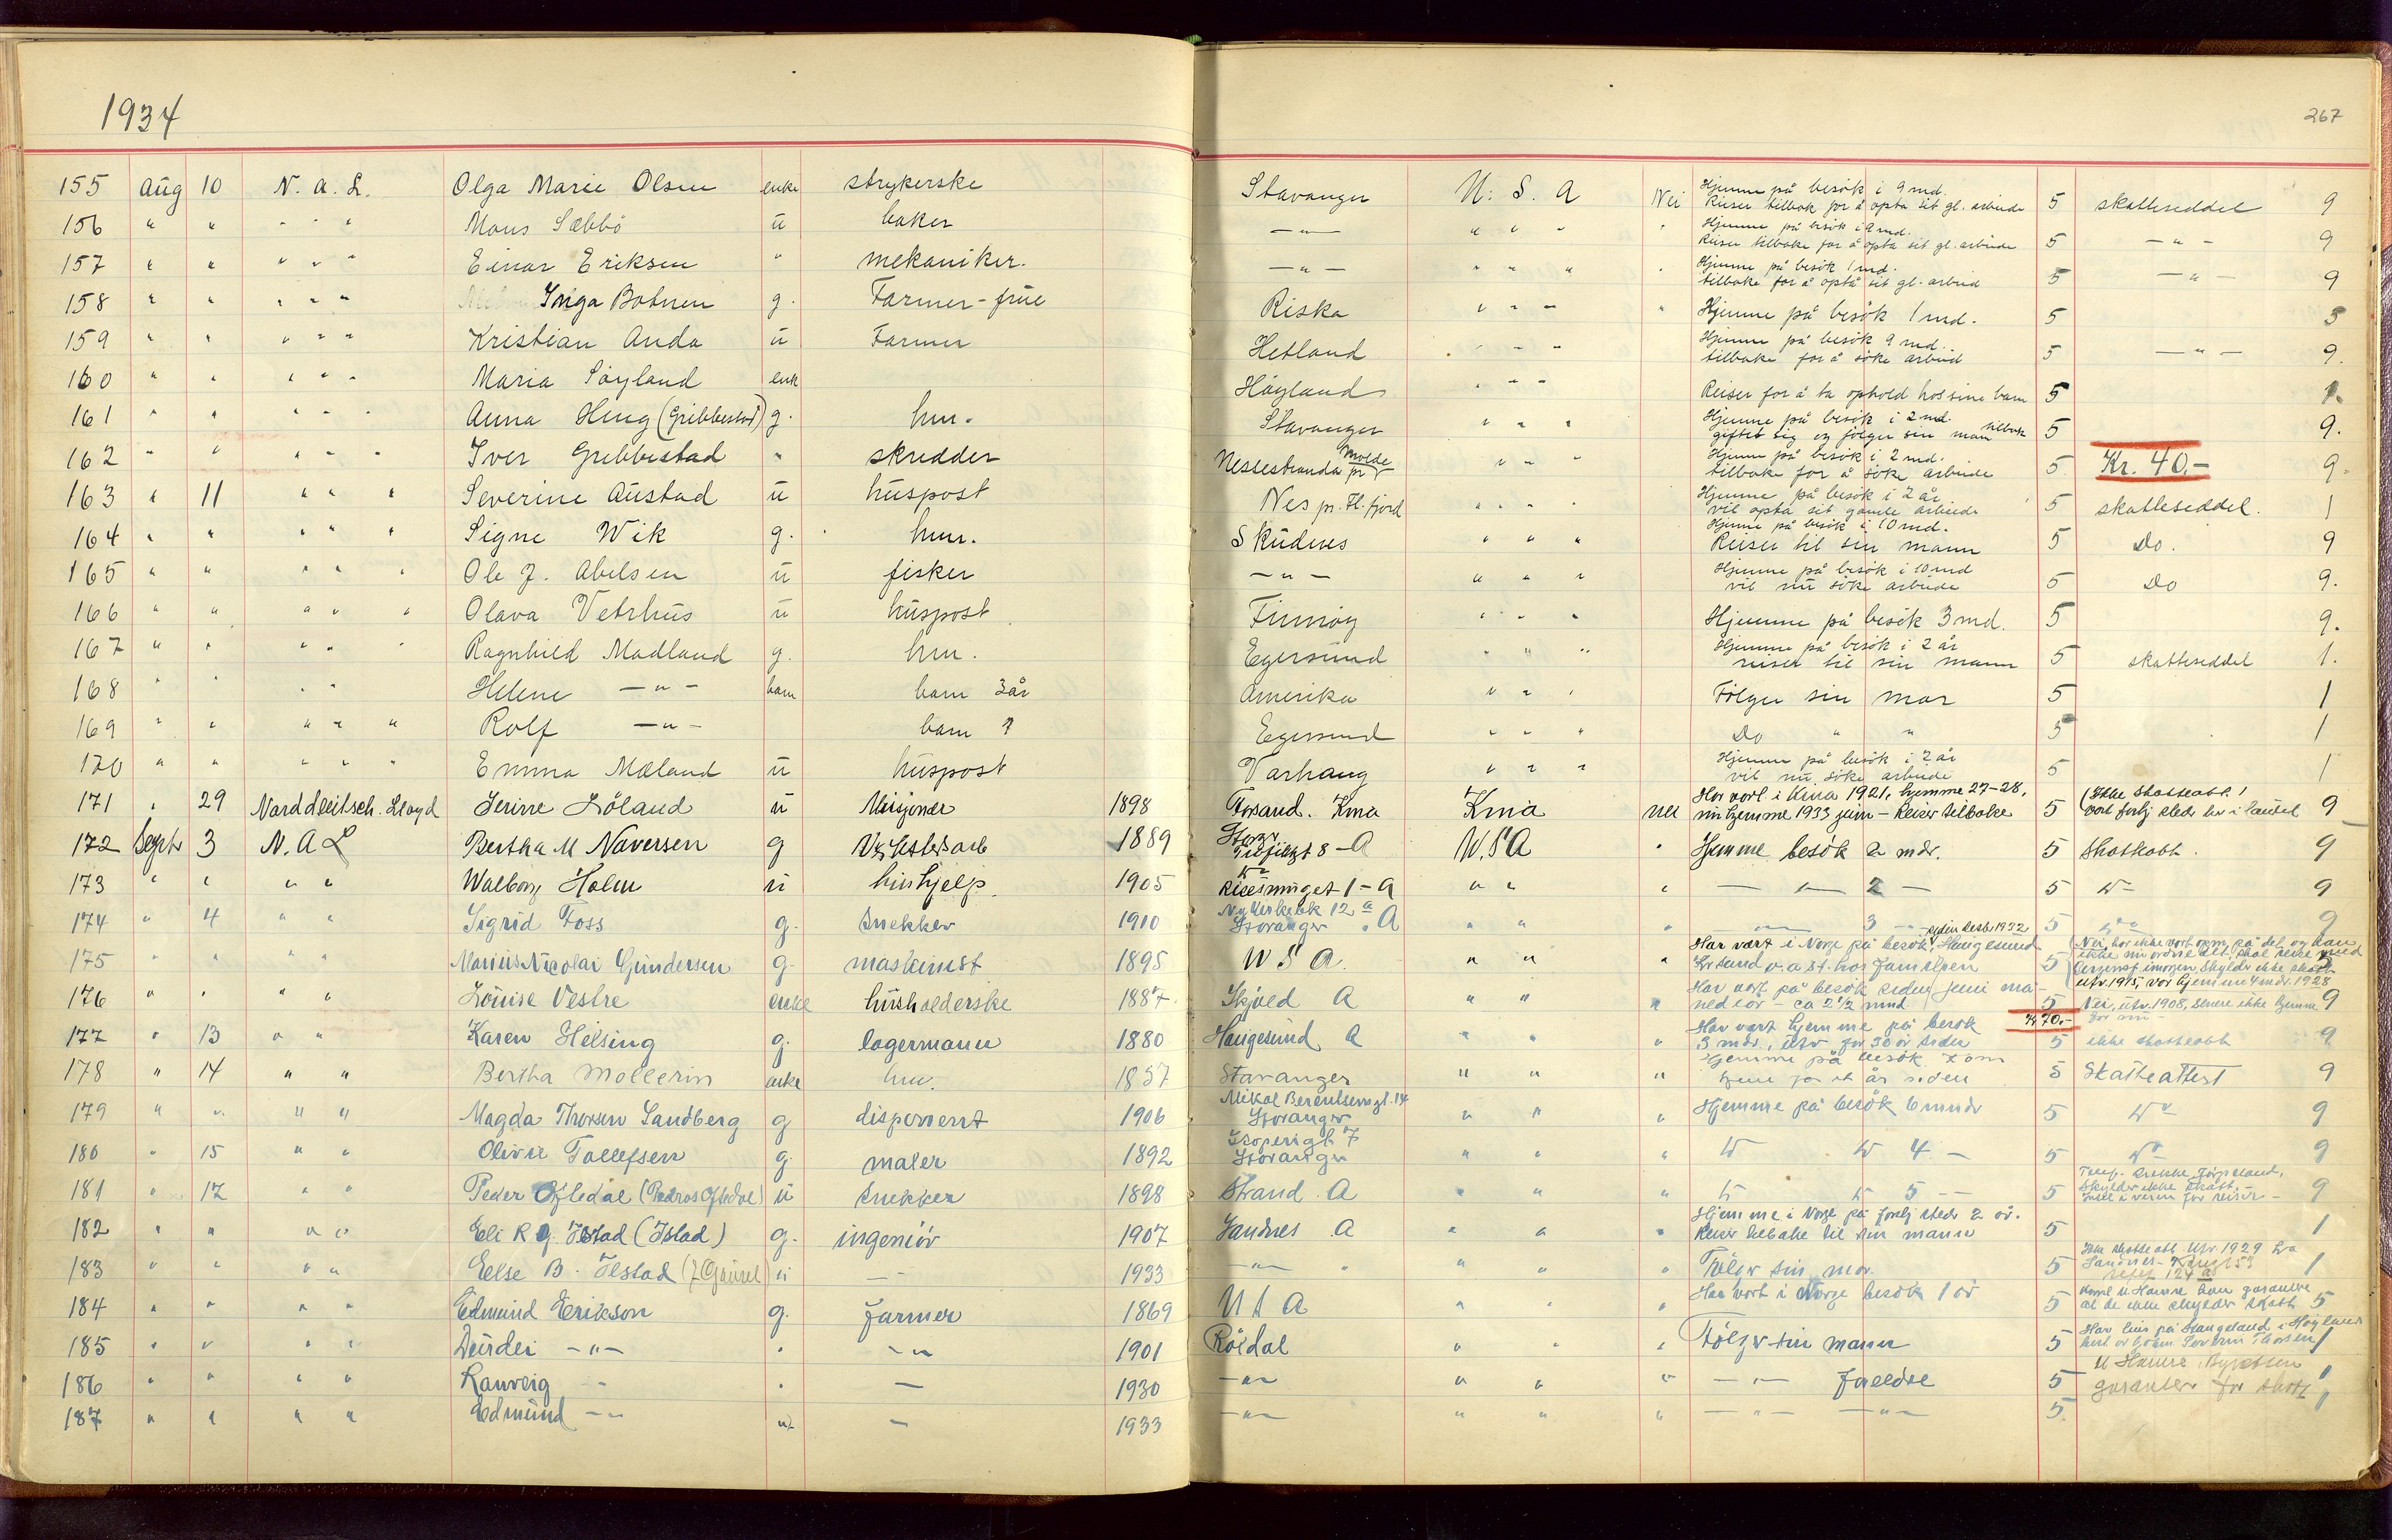 1934
267
155 Aug 10 N. A. L. Olga Marie Olsen enke strykerske Stavanger U. S. A Nei Hjemme på besök i 9 md. Reiser tilbak for å opta sit gl. arbeide 5 skatteseddel 9
156 " " " " " Mons Sæbbö u baker — " — " " " " Hjemme på besök i 2 md. Reiser tilbake for å opta sit gl. arbeide 5 — " — 9
157 " " " " " Einar Eriksen " mekaniker. — " — " " " " Hjemme på besök 1 md. tilbake for å opta sit gl. arbeid 5 — " — 9
158 " " " " " Inga Botnen g. Farmer-frue Riska " " " " Hjemme på besök 1 md. 5 5
159 " " " " " Kristian Anda u Farmer Hetland " " " Hjemme på besök 9 md. tilbake for å söke arbeid 5 — " — 9.
160 " " " " " Maria Söyland enk Höyland " " " Reiser for å ta ophold hos sine barn 5 1.
161 " " " " " Anna Heng (Gribbestad) g. hm. Stavanger " " " Hjemme på besök i 2 md. giftet sig og fölger sin man tilbak 5 9.
162 " " " " " Iver Gribbestad " skredder Nessestranda pr Molde " " " Hjemme på besök i 2 md. tilbake for å söke arbeide 5 Kr. 40.- 9.
163 " 11 " " " Severine Austad u huspost Nes pr. Fl. fjord " " " Hjemme på besök i 2 år vil opta sit gamle arbeide 5 skatteseddel. 1
164 " " " " " Signe Wik g. hm. Skudenes " " " Hjemme på besök i 10 md. Reiser til sin mann 5 Do. 9
165 " " " " " Ole J. Abelsen u fisker — " — " " " Hjemme på besök i 10 md vil nu söke arbeide 5 Do 9.
166 " " " " " Olava Vetrhus u huspost Finnöy " " " Hjemme på besök 3 md. 5 9.
167 " " " " " Ragnhild Madland g. hm. Egersund " " " Hjemme på besök i 2 år reiser til sin mann 5 skatteseddel 1.
168 " " " " Helene — " — barn barn 3 år Amerika " " " Fölger sin mor 5 1
169 " " " " " Rolf — " — barn 1 Egersund " " " Do " " 5 1
170 " " " " " Emma Mæland u huspost Varhaug " " " Hjemme på besök i 2 år vil nu söke arbeide 5 1
171 " 29 Norddeutsch. Lloyd Serine Löland u Misjonær 1898 Forsand. Kina Kina nei Har vört i Kina 1921, hjemme 27-28, nu hjemme 1933 juni - Reiser tilbake 5 (Ikke skatteatt.! vört forskj steder her i landet 9
172 Septr 3 N. A L Bertha M Naversen g 1889 8 - A U. S A " Hjemme besök 2 mdr. 5 Skatteatt. 9
173 " " " " Walborg Holm u hushjelp 1905 1 - A " " " — " — 2 — 5 Do 9
174 " 4 " " Sigrid Foss g. snekker 1910 Ny Kirkebk 12 a Stavanger. A " " " — 3 — siden desbr 1932 5 9
175 " " " " Marius Nicolai Gundersen g. maskinist 1895 U S A. " " " Har vært i Norge på besök, Haugesund Kr sand o. a st. hos familjen 5
176 " " " " Louise Vestre enke husholderske 1887. Skjold A " " " Har vört på besök siden juni ma- ned iår - ca 2 1/2 mnd 5 Nei, utv. 1908, senere ikke hjemme för nu - 9
177 " 13 " " Karen Helsing g. lagermann 1880 Haugesund A " " " Har vært hjemme på besök 3 mdr., utv. for 30 år siden Kr 70.- 5 ikke skatteatt 9
178 " 14 " " Bertha Mollerin enke hm. 1857 Stavanger " " " Hjemme på besök kom hjem for et år siden 5 Skatteattest 9
179 " " " " Magda Thorsen Sandberg g disponent 1906 Mikal Berentsens gt. 14 Stavanger " " " Hjemme på besök 6 mndr 5 Do 9
180 " 15 " " Olivie Tollefsen g. maler 1892 7 Stavanger " " " Do Do 4 — 5 Do 9
181 " 17 " " Peder Ofledal (Pedros Ofledal) u snekker 1898 Strand. A " " " Do Do 5 — 5 Skylder ikke skatt. 9
182 " " " " Eli R g. Ilstad (Ilstad) g. ingeniör 1907 Sandnes A " " " Hjemme i Norge på forskj steder 2 år. Reiser tilbake til sin mann 5 1
183 " " " " Else B. Ilstad u — 1933 — " — " " " Fölger sin mor. 5 Ikke skatteatt Utv. 1929 fra Sandnes 1
184 " " " " Edmund Erikson g. farmer 1869 U S A " " " Har vört i Norge besök 1 år 5 garantere at de ikke skylder skatt 5
185 " " " " Durdei — " — " — " 1901 Röldal " " " Fölger sin mann 5 1
186 " " " " Ranveig — " — 1930 — " — " " " — " — foreldre 5 garanterer for skatt 1
187 " " " " Edmund — " — u — 1933 — " — " " " — " — — " — 5. 1